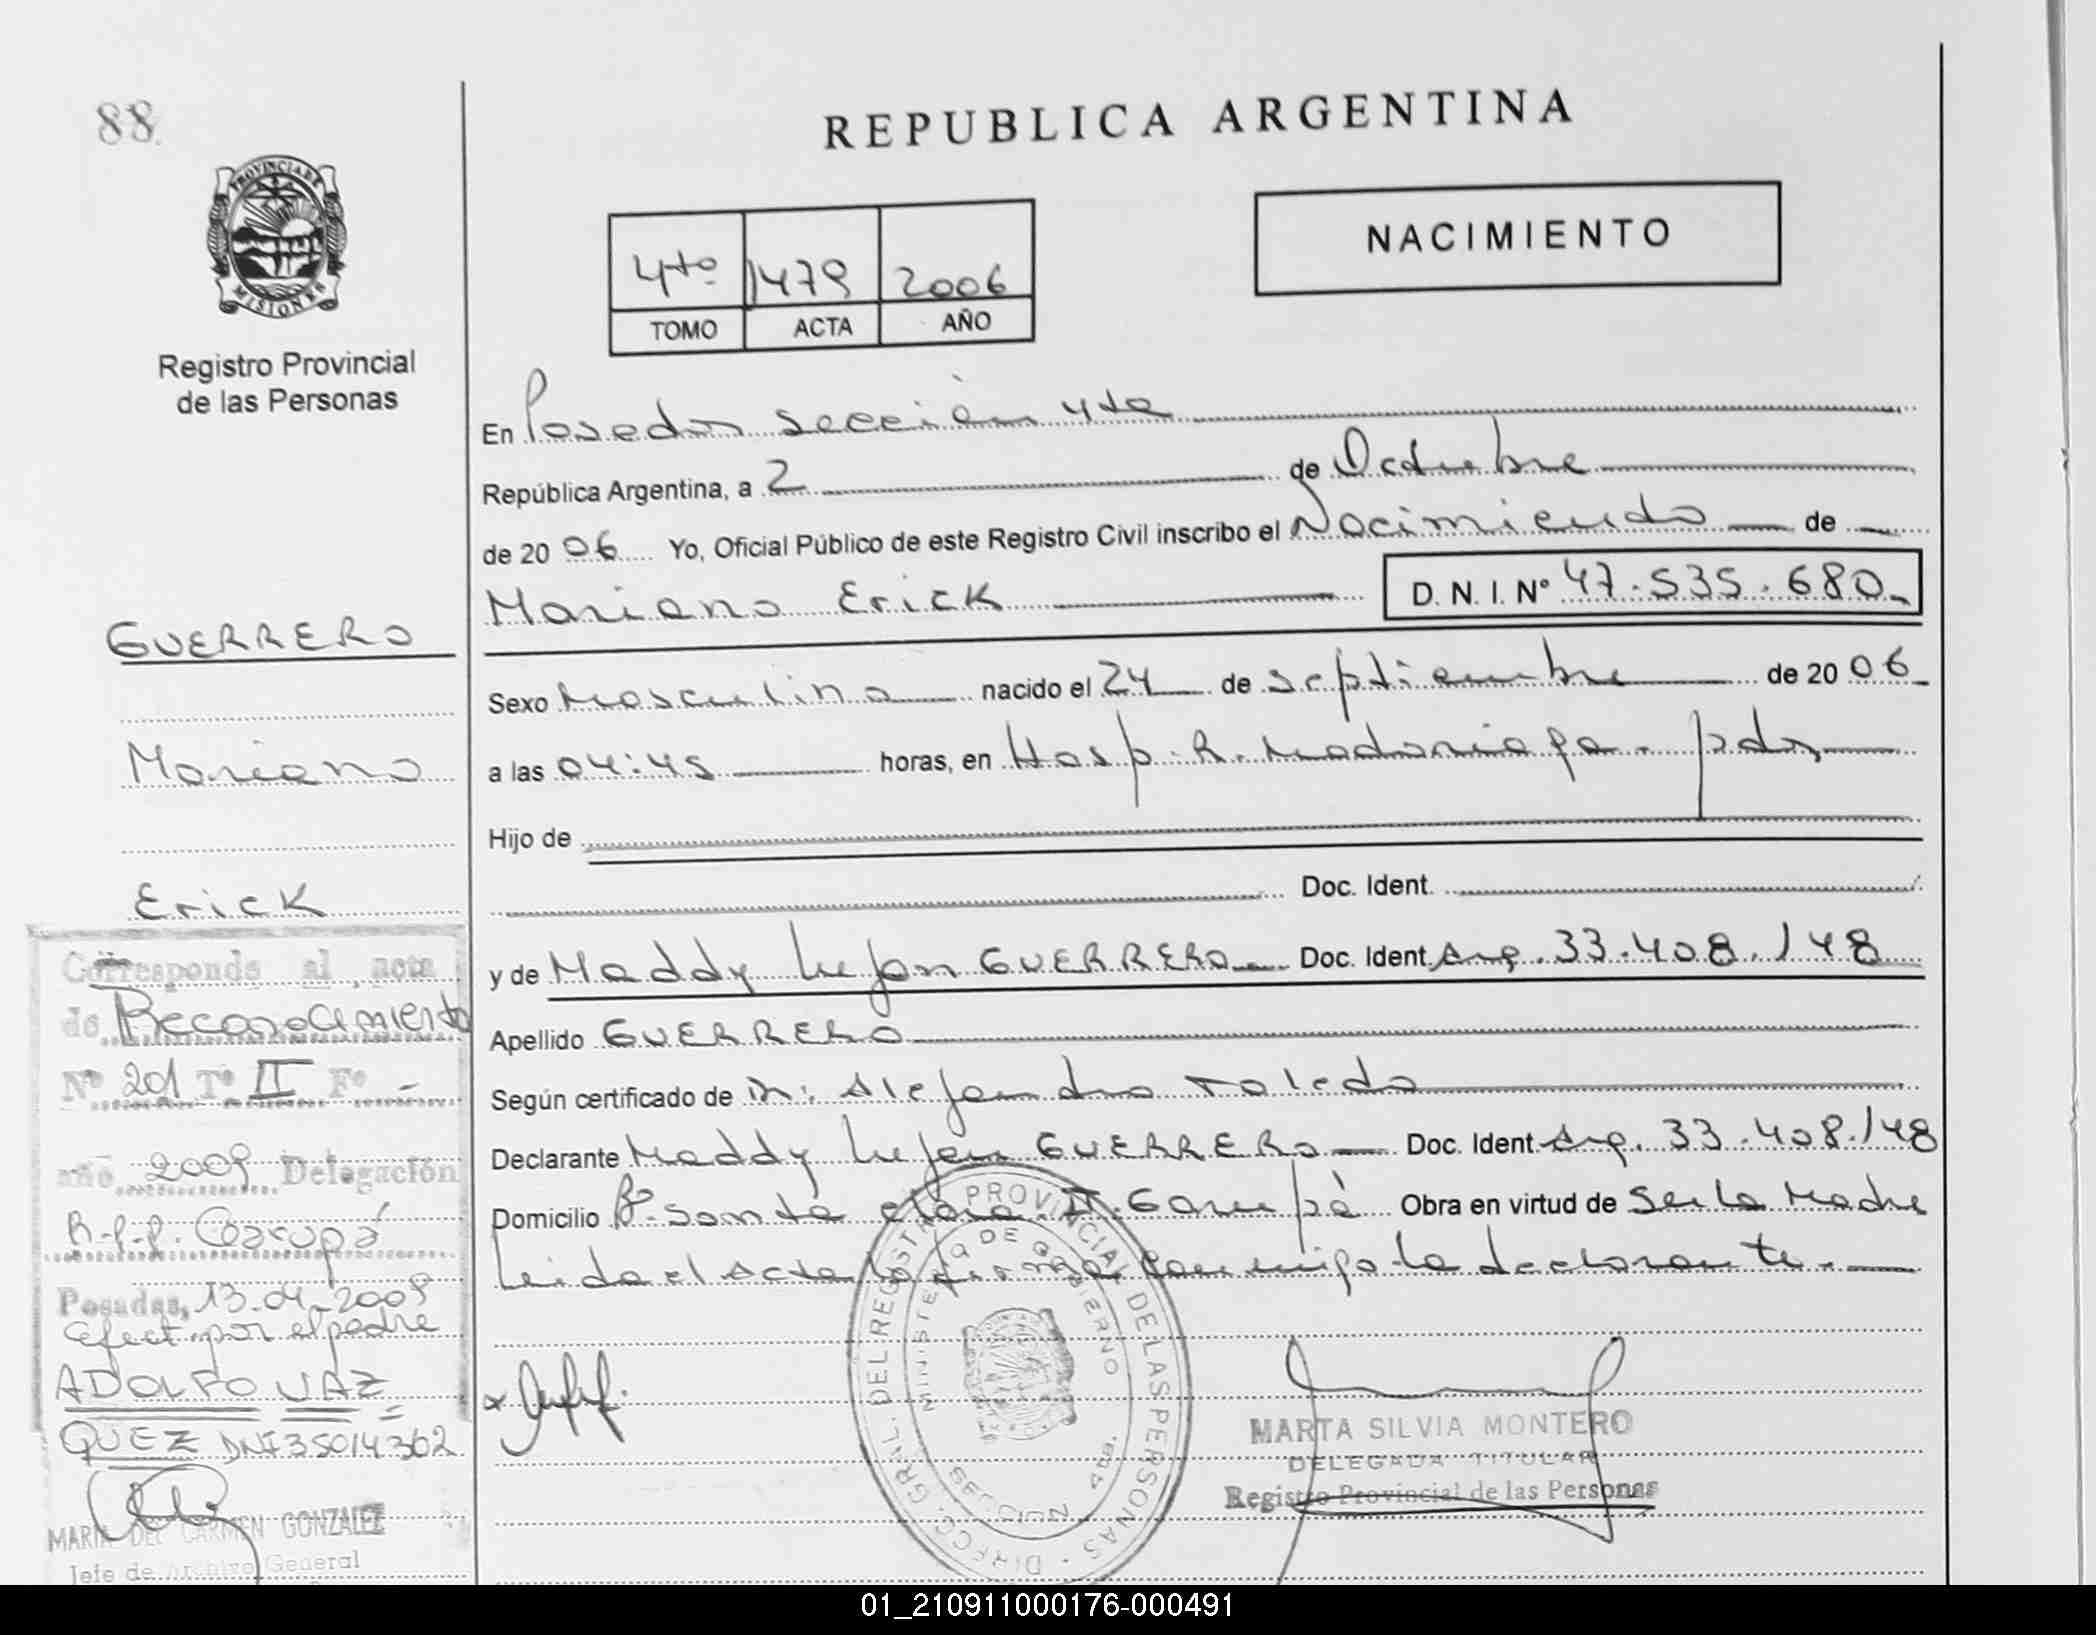 88.
PROVINCIA DE
MISIONES
Registro Provincial
de las Personas
REPUBLICA ARGENTINA
4to 1479 2006
TOMO ACTA AÑO
NACIMIENTO
En Posadas sección 4ta
República Argentina, a 2 de Octubre
de 2006 Yo, Oficial Público de este Registro Civil inscribo el Nacimiento de
Mariano Erick D. N. I. Nº 47.535.680
Sexo Masculino nacido el 24 de septiembre de 2006
a las 04:45 horas, en Hosp. R. Madariaga. pdas
Hijo de
Doc. Ident.
y de Maddy Lujan GUERRERO Doc. Ident. Arg. 33.408.148
Apellido GUERRERO
Según certificado de Dr: Alejandro Toledo
Declarante Maddy Lujan GUERRERO Doc. Ident. Arg. 33.408.148
Domicilio Bº Santa Clara II. Garupá Obra en virtud de Ser la Madre
Leida el Acta la firma conmigo la declarante.
GUERRERO
Mariano
Erick
Corresponde al acta
de Reconocimiento
Nº 201 Tº II Fº -
año 2009 Delegación
R.P.P. Garupá
Posadas, 13.04.2009
efect. por el padre
ADOLFO VAZ
QUEZ DNI 35014362
MARIA DEL CARMEN GONZALEZ
Jefe de Archivo General
DIRECC. GRAL. DEL REGISTRO PROVINCIAL DE LAS PERSONAS
MINISTERIO DE GOBIERNO
SECCION 4ta.
MARTA SILVIA MONTERO
DELEGADA TITULAR
Registro Provincial de las Personas
01_210911000176-000491